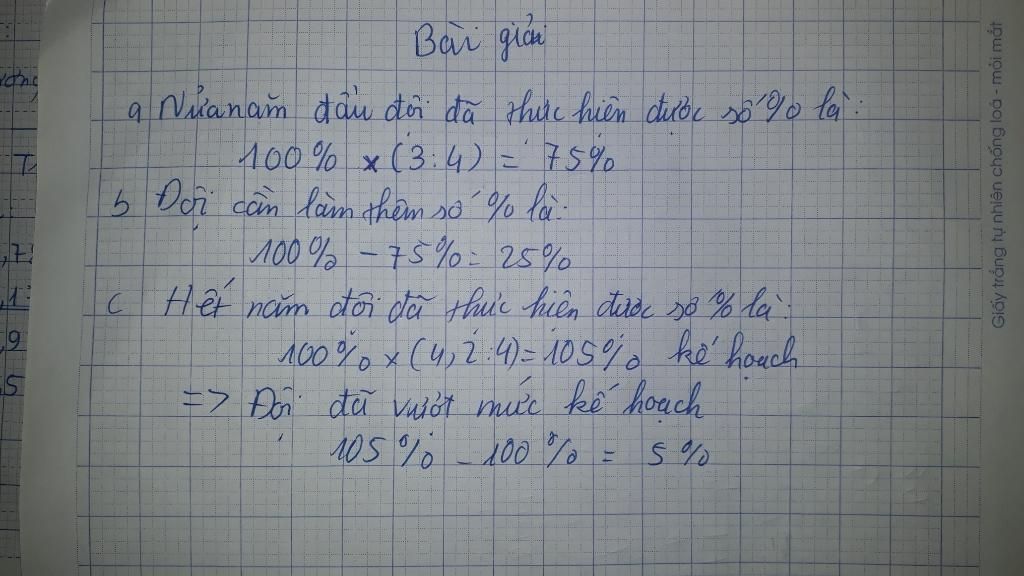 Bài giải
a Nửa năm đầu đội đã thực hiện được số % là:
100% x (3:4) = 75%
b Đội cần làm thêm số % là:
100% - 75% = 25%
c Hết năm đội đã thực hiện được số % là:
100% x (4,2:4) = 105% kế hoạch
=> Đội đã vượt mức kế hoạch
105% - 100% = 5%
Giấy trắng tự nhiên chống loá - mỏi mắt